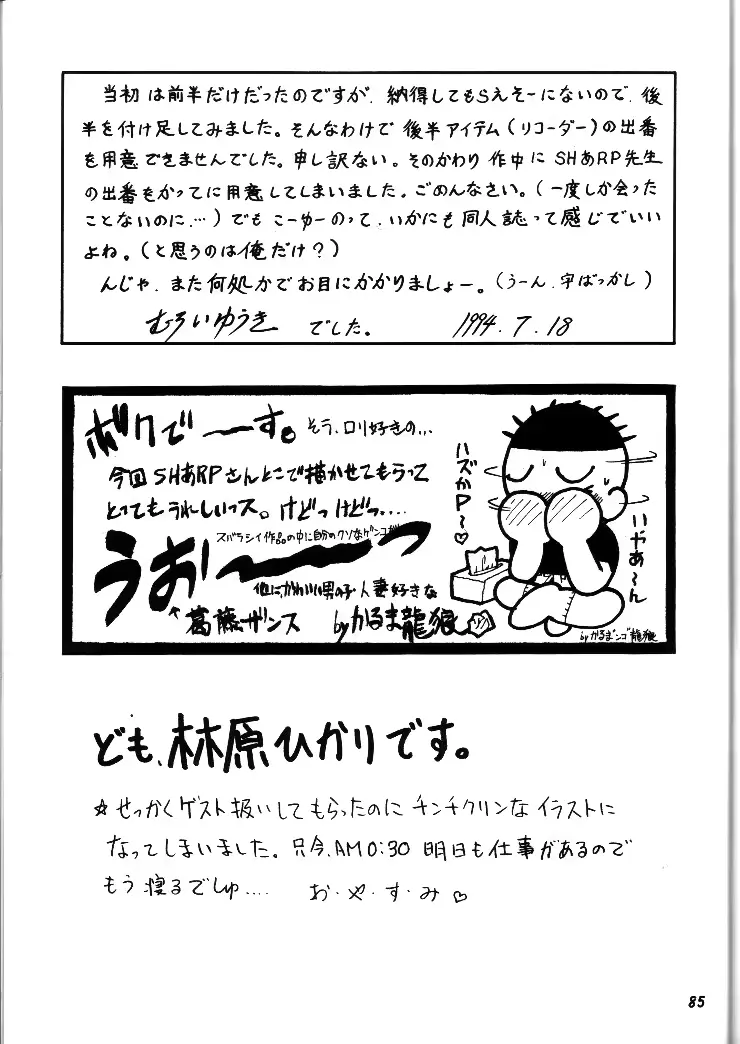 当初は前半だけだったのですが、納得してもらえそーにないので、後
半を付け足してみました。そんなわけで後半アイテム(リコーダー)の出番
を用意できませんでした。申し訳ない。そのかわり作中にSHあRP先生
の出番をかってに用意してしまいました。ごめんなさい。(一度しか会った
ことないのに…)でもこーゆーのって、いかにも同人誌って感じでいい
よね。(と思うのは俺だけ?)
んじゃ、また何処かでお目にかかりましょー。(うーん、字ばっかし)
むろいゆうき でした。 1994.7.18
ボクで〜す。そう、ロリ好きの…
今回SHあRPさんとこで描かせてもらって
とってもうれしいっス。けどっけどっ….
スバラシイ作品の中に自分のクソなゲンコが
うお〜〜っ
他にかわいい男の子・人妻好きな
↑葛藤ザンス byかるま龍狼
ハズかP〜♡
いやぁ〜ん
byかるまンゴ龍狼
ども、林原ひかりです。
☆せっかくゲスト扱いしてもらったのにチンチクリンなイラストに
なってしまいました。只今、AM0:30 明日も仕事があるので
もう寝るでしゅ…. お・や・す・み♡
85